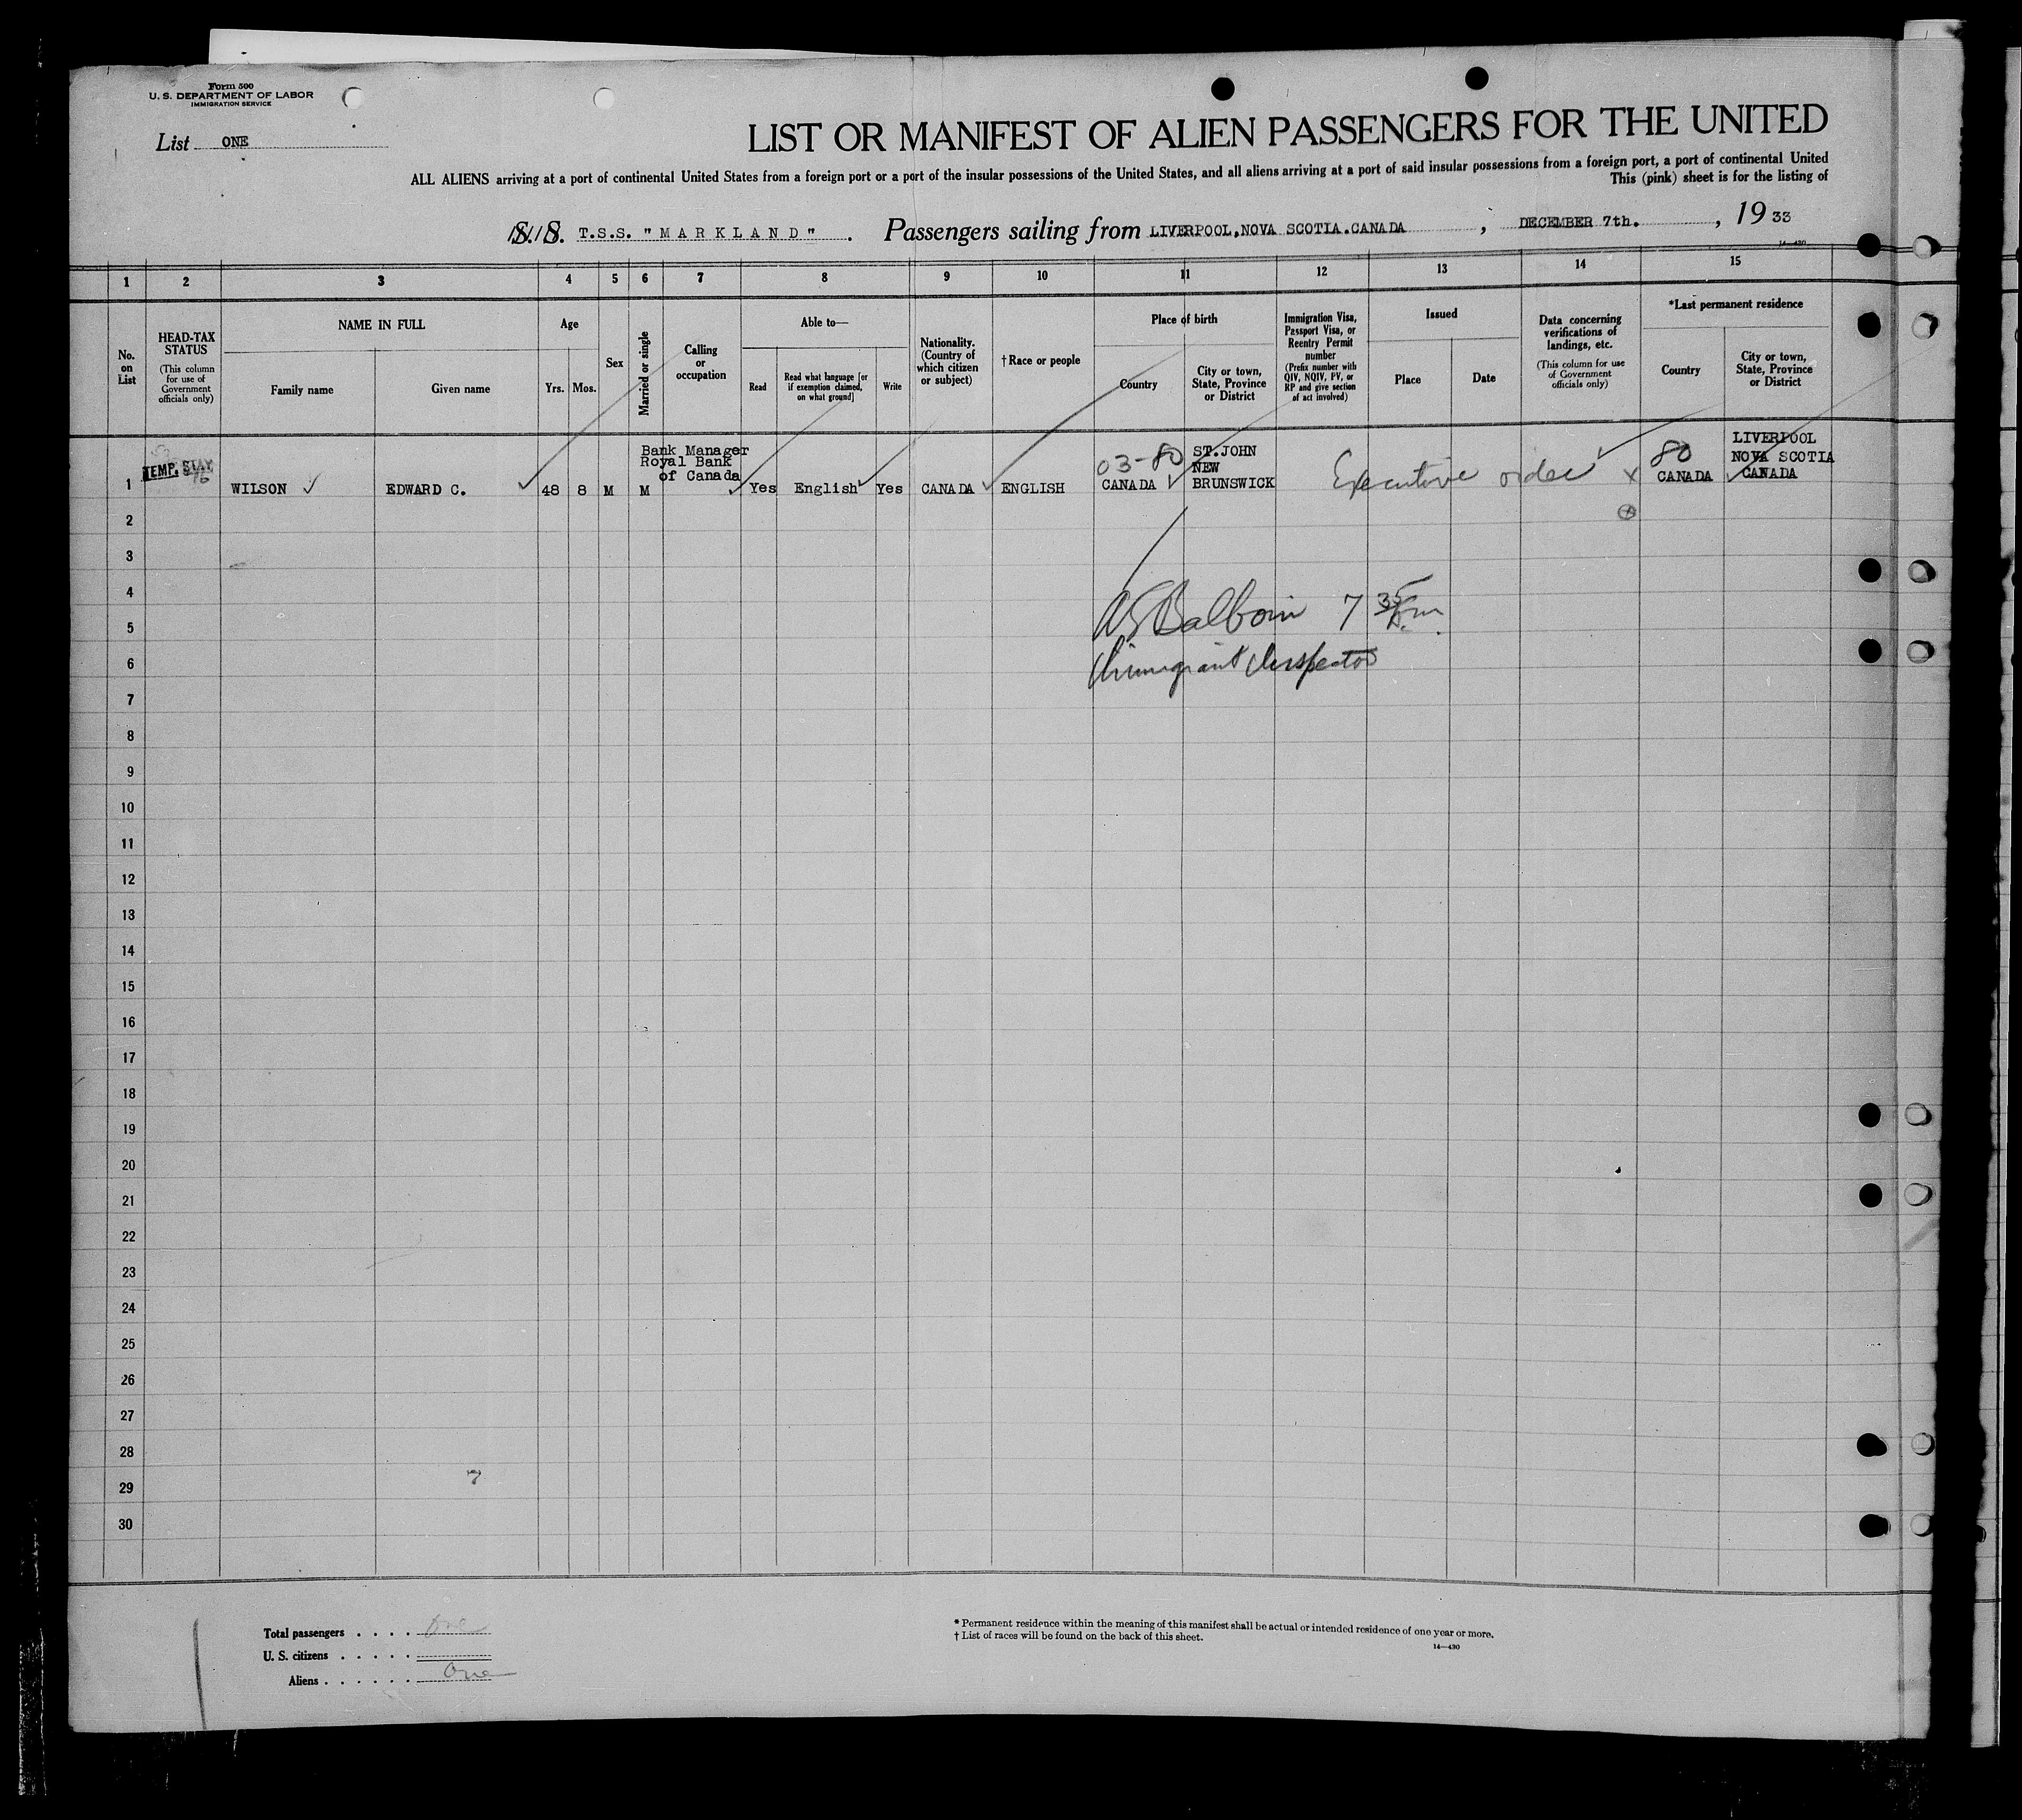 Form 500
U. S. DEPARTMENT OF LABOR
IMMIGRATION SERVICE
List ONE
LIST OR MANIFEST OF ALIEN PASSENGERS FOR THE UNITED
ALL ALIENS arriving at a port of continental United States from a foreign port or a port of the insular possessions of the United States, and all aliens arriving at a port of said insular possessions from a foreign port, a port of continental United
This (pink) sheet is for the listing of
S. S. T.S.S. "MARKLAND". Passengers sailing from LIVERPOOL,NOVA SCOTIA.CANADA, DECEMBER 7th., 19 33
14—430
1 2 3 4 5 6 7 8 9 10 11 12 13 14 15
No. on List
HEAD-TAX STATUS
(This column for use of Government officials only)
NAME IN FULL
Family name
Given name
Age
Yrs. Mos.
Sex
Married or single
Calling or occupation
Able to—
Read
Read what language [or if exemption claimed, on what ground]
Write
Nationality. (Country of which citizen or subject)
†Race or people
Place of birth
Country
City or town, State, Province or District
Immigration Visa, Passport Visa, or Reentry Permit number
(Prefix number with QIV, NQIV, PV, or RP and give section of act involved)
Issued
Place
Date
Data concerning verifications of landings, etc.
(This column for use of Government officials only)
*Last permanent residence
Country
City or town, State, Province or District
TEMP. STAY
1 WILSON EDWARD C. 48 8 M M Bank Manager Royal Bank of Canada Yes English Yes CANADA ENGLISH 03-80 CANADA ST.JOHN NEW BRUNSWICK Executive order 80 CANADA LIVERPOOL NOVA SCOTIA CANADA
2
3
4
5
6
7
8
9
10
11
12
13
14
15
16
17
18
19
20
21
22
23
24
25
26
27
28
29
30
7 35
Immigrant Inspector
7
Total passengers . . . . One
U. S. citizens . . . . .
Aliens . . . . . . One
* Permanent residence within the meaning of this manifest shall be actual or intended residence of one year or more.
† List of races will be found on the back of this sheet.
14—430